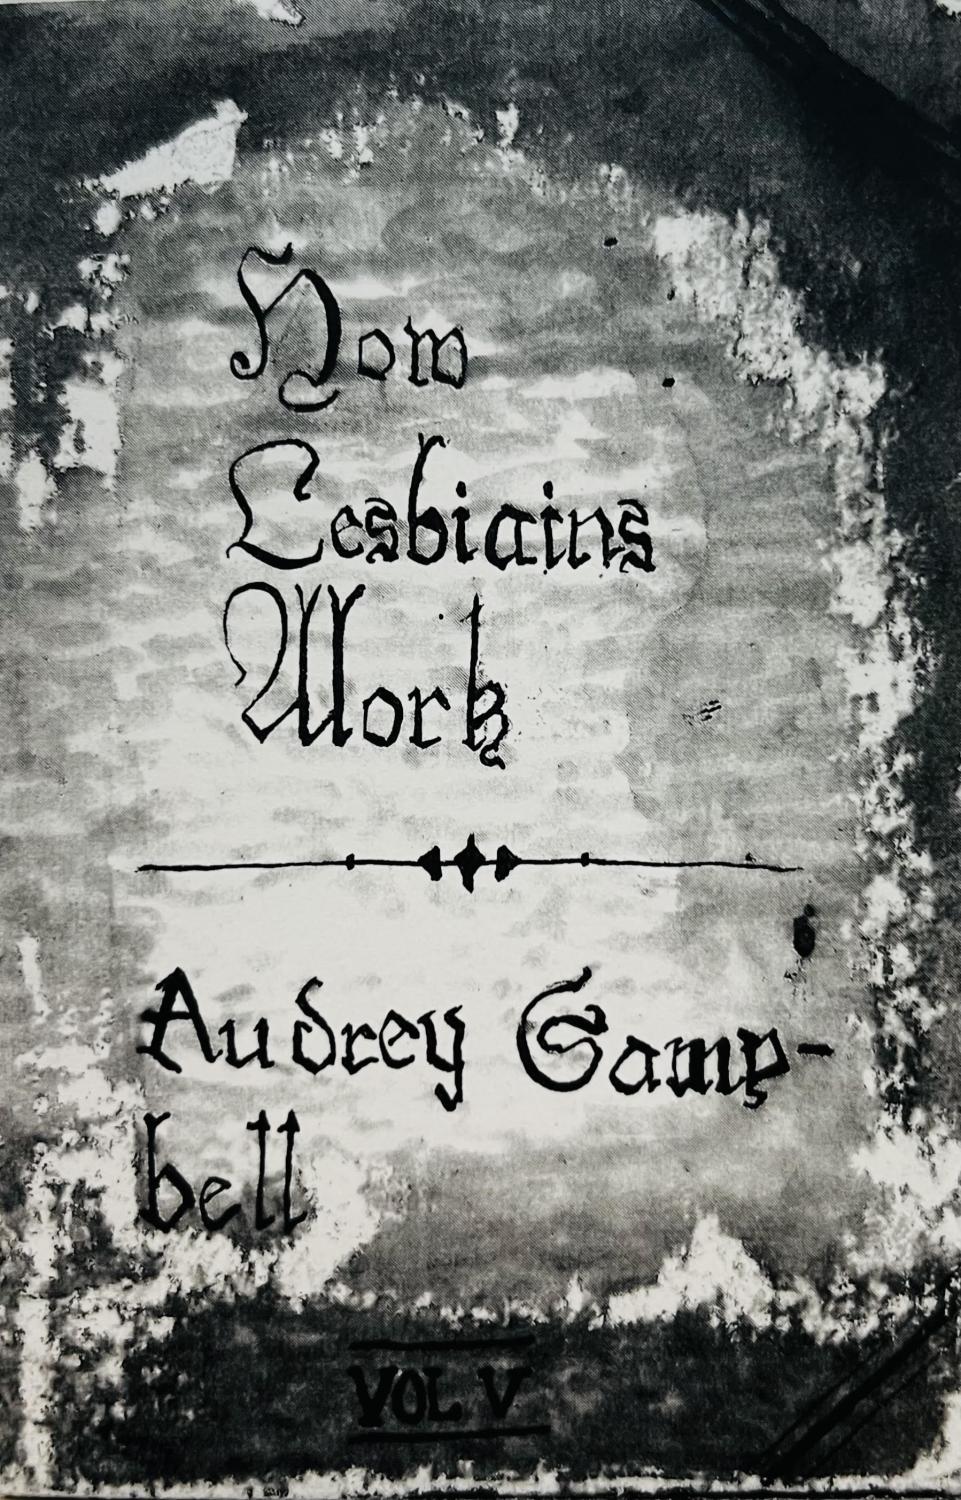 How
Lesbiains
Work
Audrey Camp-
bell
VOL V